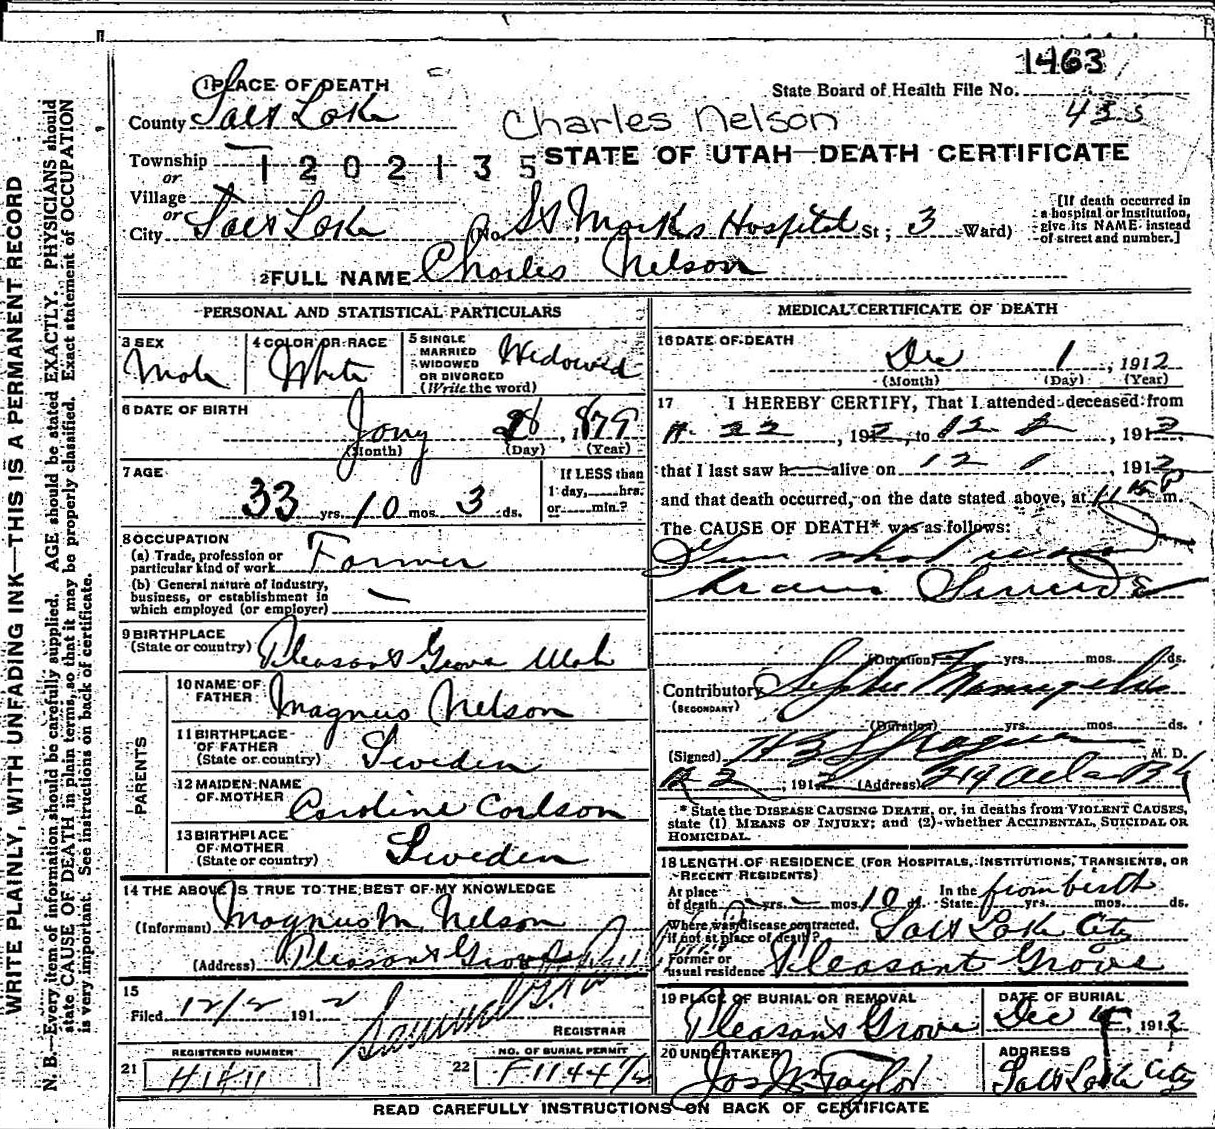 1463
1 PLACE OF DEATH
State Board of Health File No.
County Salt Lake
Charles Nelson
435
Township 1202135
STATE OF UTAH—DEATH CERTIFICATE
or
Village
or
City Salt Lake (No. St Marks Hospital St; 3 Ward)
[If death occurred in a hospital or institution, give its NAME instead of street and number.]
2 FULL NAME Charles Nelson
PERSONAL AND STATISTICAL PARTICULARS
3 SEX
Male
4 COLOR OR RACE
White
5 SINGLE MARRIED WIDOWED OR DIVORCED (Write the word)
Widowed
6 DATE OF BIRTH
Jany 28, 1879
(Month) (Day) (Year)
7 AGE
33 yrs. 10 mos. 3 ds.
If LESS than 1 day, hrs. or min.?
8 OCCUPATION
(a) Trade, profession or particular kind of work Farmer
(b) General nature of industry, business, or establishment in which employed (or employer) —
9 BIRTHPLACE (State or country) Pleasant Grove Utah
PARENTS
10 NAME OF FATHER Magnus Nelson
11 BIRTHPLACE OF FATHER (State or country) Sweden
12 MAIDEN NAME OF MOTHER Caroline Carlson
13 BIRTHPLACE OF MOTHER (State or country) Sweden
14 THE ABOVE IS TRUE TO THE BEST OF MY KNOWLEDGE
(Informant) Magnus M Nelson
(Address) Pleasant Grove
15
Filed 12/2 1912 Samuel G.
REGISTRAR
21 REGISTERED NUMBER
22 NO. OF BURIAL PERMIT
MEDICAL CERTIFICATE OF DEATH
16 DATE OF DEATH
Dec 1, 1912
(Month) (Day) (Year)
17 I HEREBY CERTIFY, That I attended deceased from
22, 1912, to 12, 1912
that I last saw h alive on 12 1 1912
and that death occurred, on the date stated above, at 11 45 P m.
The CAUSE OF DEATH* was as follows:
Gun shot wound
brain Suicide
(Duration) yrs. mos. ds.
Contributory Septic Meningitis
(SECONDARY)
(Duration) yrs. mos. ds.
(Signed) H B Sprague, M. D.
12 2, 1912 (Address) 219
* State the DISEASE CAUSING DEATH, or, in deaths from VIOLENT CAUSES, state (1) MEANS OF INJURY; and (2) whether ACCIDENTAL, SUICIDAL OR HOMICIDAL.
18 LENGTH OF RESIDENCE (FOR HOSPITALS, INSTITUTIONS, TRANSIENTS, OR RECENT RESIDENTS)
At place of death yrs. mos. 10 ds. In the State from birth yrs. mos. ds.
Where was disease contracted, if not at place of death? Salt Lake City
Former or usual residence Pleasant Grove
19 PLACE OF BURIAL OR REMOVAL
Pleasant Grove
DATE OF BURIAL
Dec 4, 1912
20 UNDERTAKER
Jos Wm Taylor
ADDRESS
Salt Lake City
READ CAREFULLY INSTRUCTIONS ON BACK OF CERTIFICATE
WRITE PLAINLY, WITH UNFADING INK—THIS IS A PERMANENT RECORD
N. B.—Every item of information should be carefully supplied. AGE should be stated EXACTLY. PHYSICIANS should
state CAUSE OF DEATH in plain terms, so that it may be properly classified. Exact statement of OCCUPATION
is very important. See instructions on back of certificate.